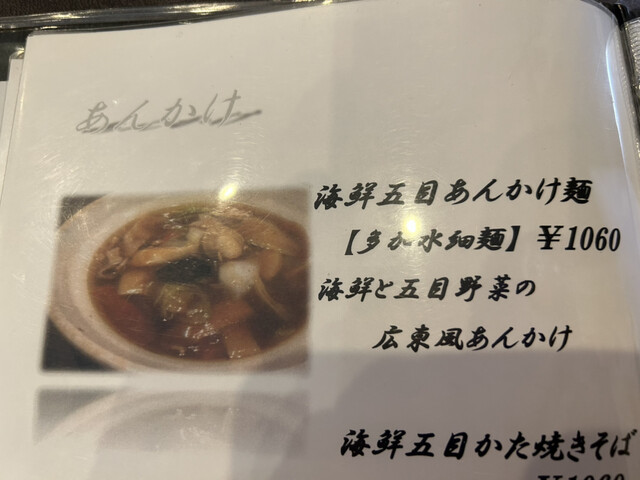 あんかけ
海鮮五目あんかけ麺
【多加水細麺】￥1060
海鮮と五目野菜の
広東風あんかけ
海鮮五目かた焼きそば